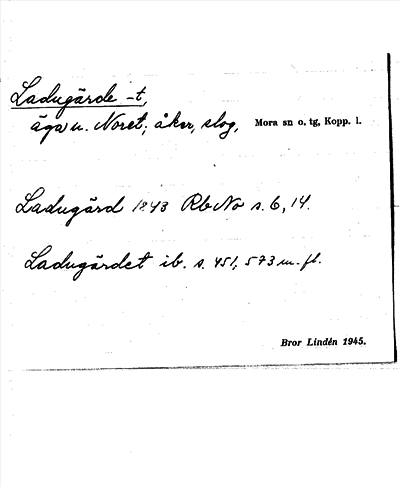 Ladugärde -t,
äga u. Noret; åker, slog, Mora sn o. tg, Kopp. l.
Ladugård 1843 Rb No s. 6, 14.
Ladugärdet ib. s. 451, 573 m. fl.
Bror Lindén 1945.